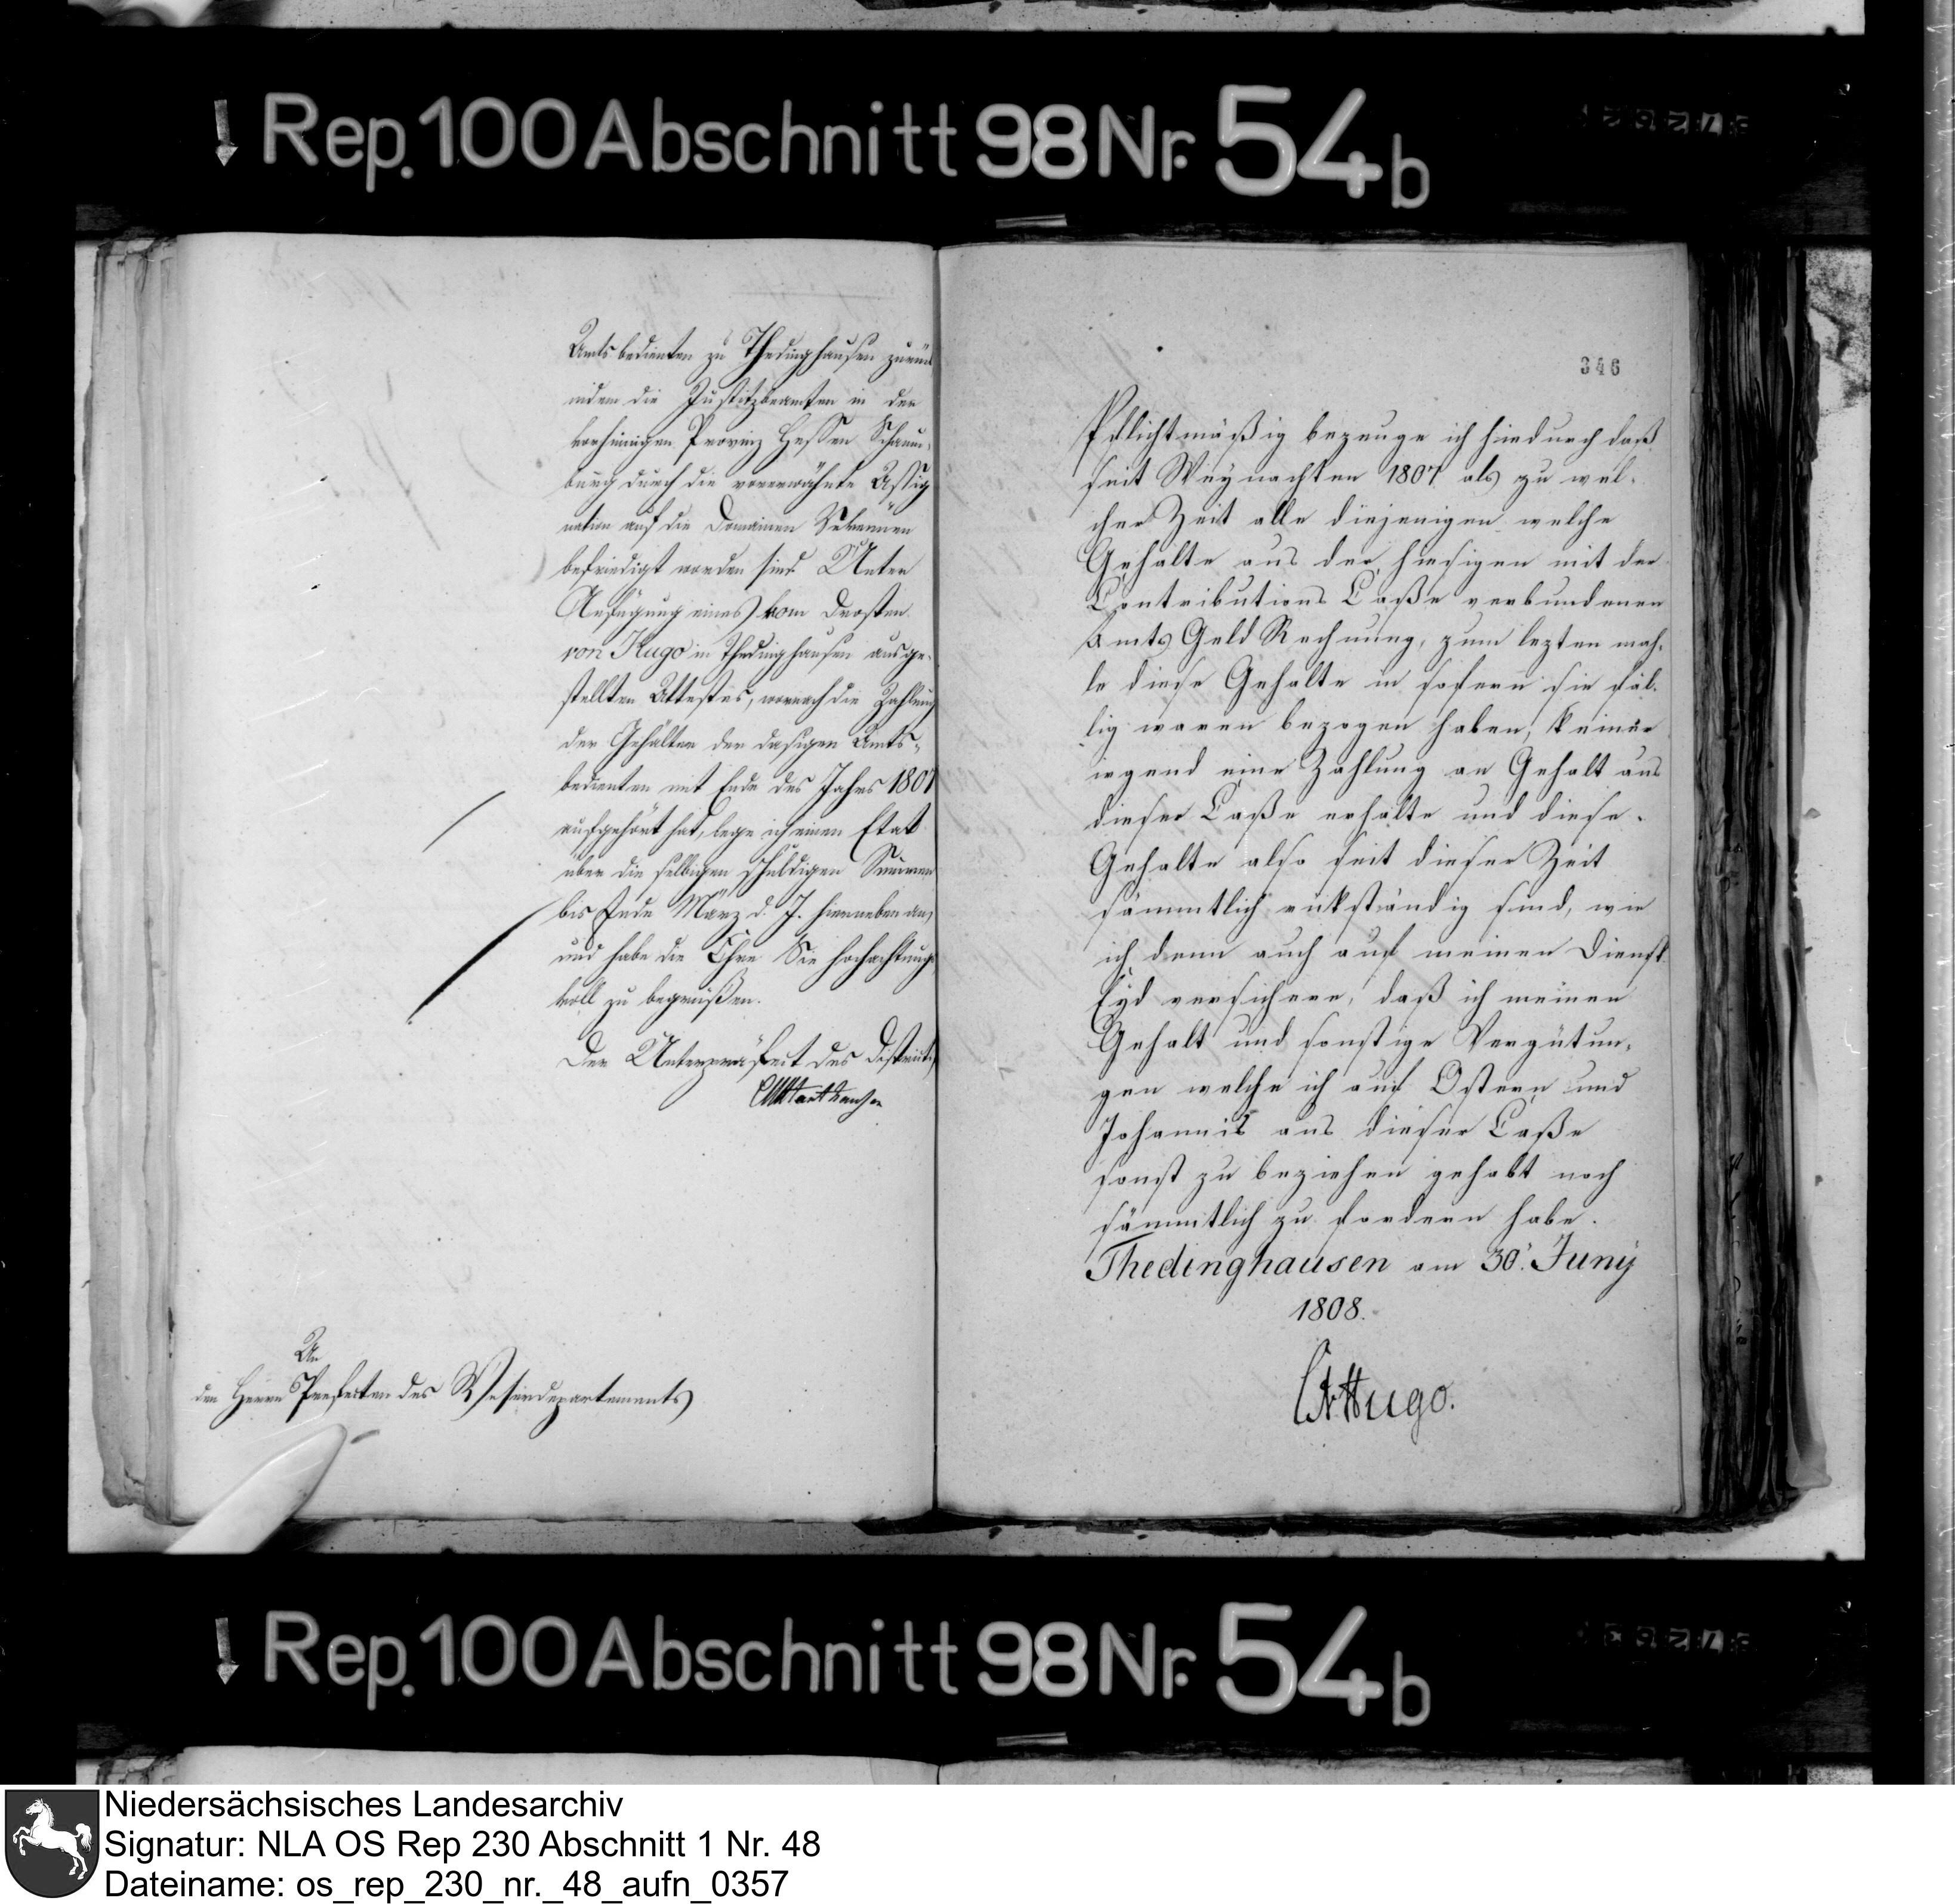 Rep. 100 Abschnitt 98 Nr. 54 b
Amtsbedienten zu Thedinghausen zurück
indem die Justitzbeamten in der
vorhinnigen Provinz Hessen Schaum-
burg durch die vorerwähnte Assig
nation auf die Domainen Revenuen
befriedigt worden sind. Unter
Anfügung eines vom Drosten
von Hugo in Thedinghausen ausge-
stellten Attestes, wornach die Zahlung
der Gehälter der dasigen Amts-
bedienten mit Ende des Jahrs 1807
aufgehört hat, lege ich einen Etat
über die selbigen schuldigen Summen
bis Ende März d. J. hierneben an,
und habe die Ehre Sie hochachtungs
voll zu begrüßen.
Der Unterpräfect des Districts
An
den Herrn Prefecten des Weserdepartements
346
Pflichtmäßig bezeuge ich hiedurch daß
seit Weynachten 1807 als zu wel-
cher Zeit alle diejenigen welche
Gehalte aus der hiesigen mit der
Contributions Caße verbundenen
Amts Geld Rechnung, zum lezten mah-
le diese Gehalte in sofern sie fäl-
lig waren bezogen haben, keiner
irgend eine Zahlung an Gehalt aus
dieser Caße erhalte und diese
Gehalte also seit dieser Zeit
sämmtlich rükständig sind, wie
ich denn auch auf meinen Dienst
Eyd versichere, daß ich meinen
Gehalt und sonstige Vergütun-
gen welche ich auf Ostern und
Johannis aus dieser Caße
sonst zu beziehen gehabt noch
sämmtlich zu fordern habe.
Thedinghausen am 30. Juny
1808.
Hugo.
Rep. 100 Abschnitt 98 Nr. 54 b
Niedersächsisches Landesarchiv
Signatur: NLA OS Rep 230 Abschnitt 1 Nr. 48
Dateiname: os_rep_230_nr._48_aufn_0357